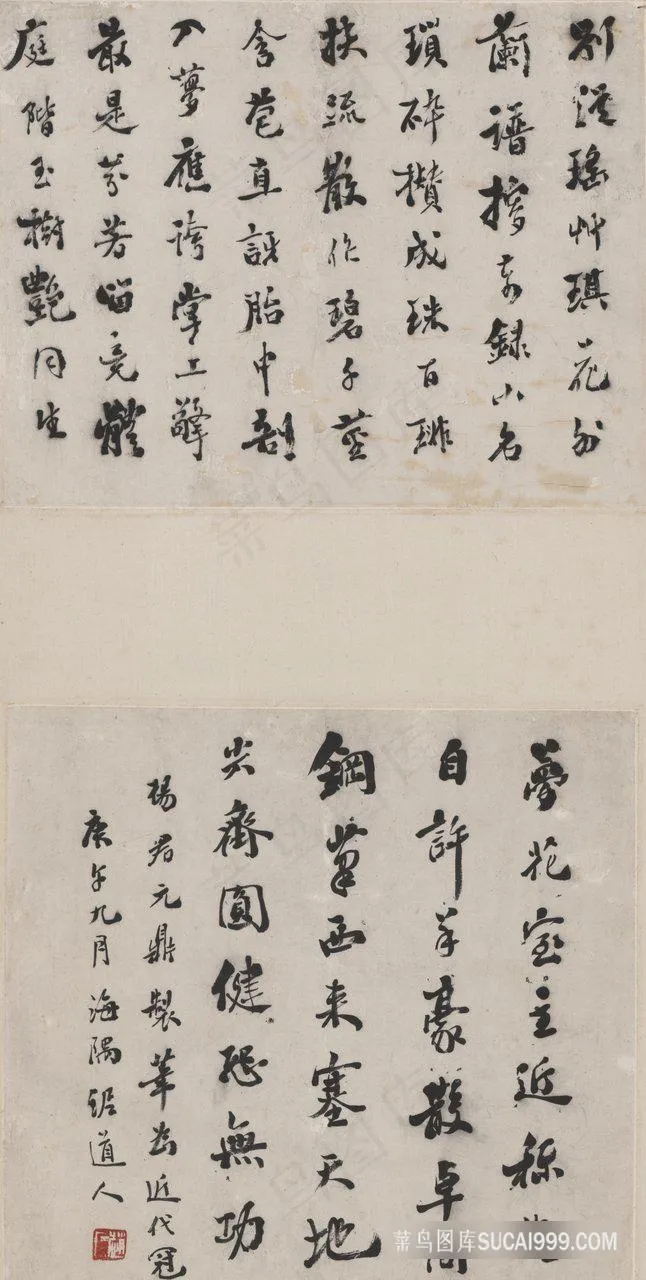 别從瑤艸琪花外
蘭譜搜奇錄小名
瑣碎攢成珠百琲
扶疏散作碧千莖
含苞直訝胎中剖
入夢應誇掌上擎
最是芬芳留竟體
庭階玉樹艷同生
夢花室主近稱
自許羊豪散卓同
鋼筆西来塞天地
尖齊圓健恐無功
楊君元鼎製筆為近代冠
庚午九月海隅道人
菜鸟图库SUCAI999.com